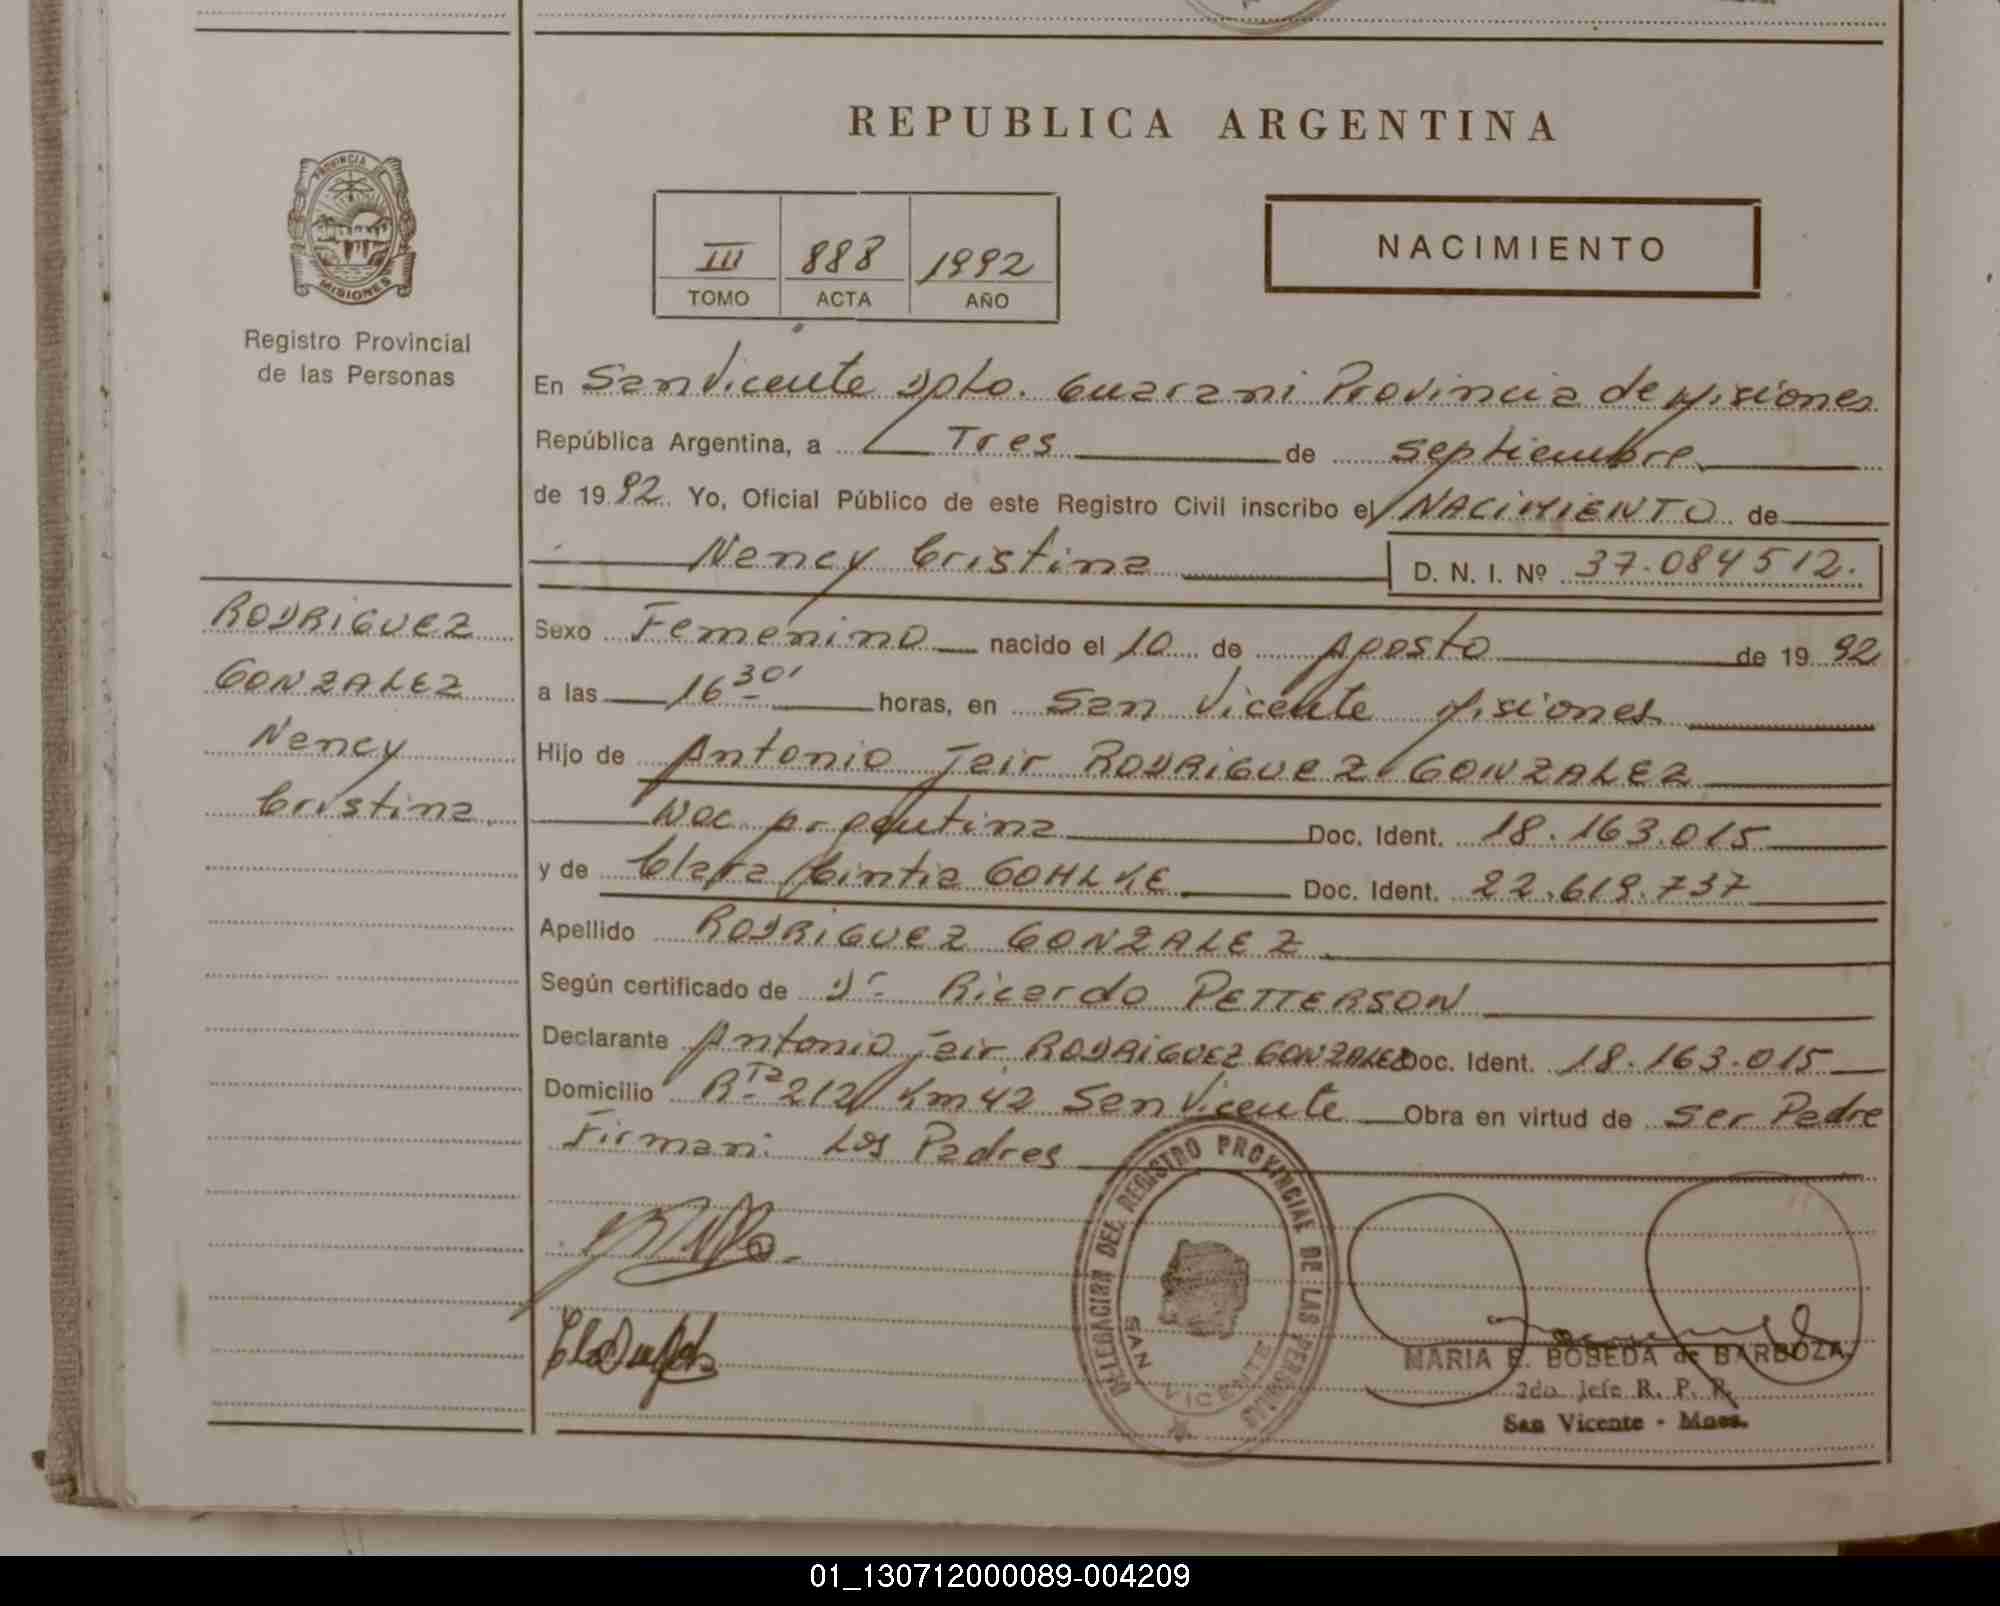 REPUBLICA ARGENTINA
PROVINCIA DE
MISIONES
Registro Provincial
de las Personas
III 888 1992
TOMO ACTA AÑO
NACIMIENTO
En San Vicente Dpto. Guarani Provincia de Misiones
República Argentina, a Tres de Septiembre
de 1992 Yo, Oficial Público de este Registro Civil inscribo el NACIMIENTO de
Nancy Cristina D. N. I. Nº 37.084512.
RODRIGUEZ
GONZALEZ
Nancy
Cristina
Sexo Femenino nacido el 10 de Agosto de 1992
a las 16 30' horas, en San Vicente Misiones
Hijo de Antonio Jair RODRIGUEZ GONZALEZ
Nac Argentina Doc. Ident. 18.163.015
y de Clara Cintia GOHLKE Doc. Ident. 22.619.737
Apellido RODRIGUEZ GONZALEZ
Según certificado de Dr Ricardo PETTERSON
Declarante Antonio Jair RODRIGUEZ GONZALEZ Doc. Ident. 18.163.015
Domicilio Rta 212 Km 42 San Vicente Obra en virtud de ser Padre
Firman: Los Padres
DELEGACION DEL REGISTRO PROVINCIAL DE LAS PERSONAS
SAN VICENTE
MARIA E. BOBEDA de BARBOZA
2do Jefe R. P. P.
San Vicente - Mnes.
01_130712000089-004209